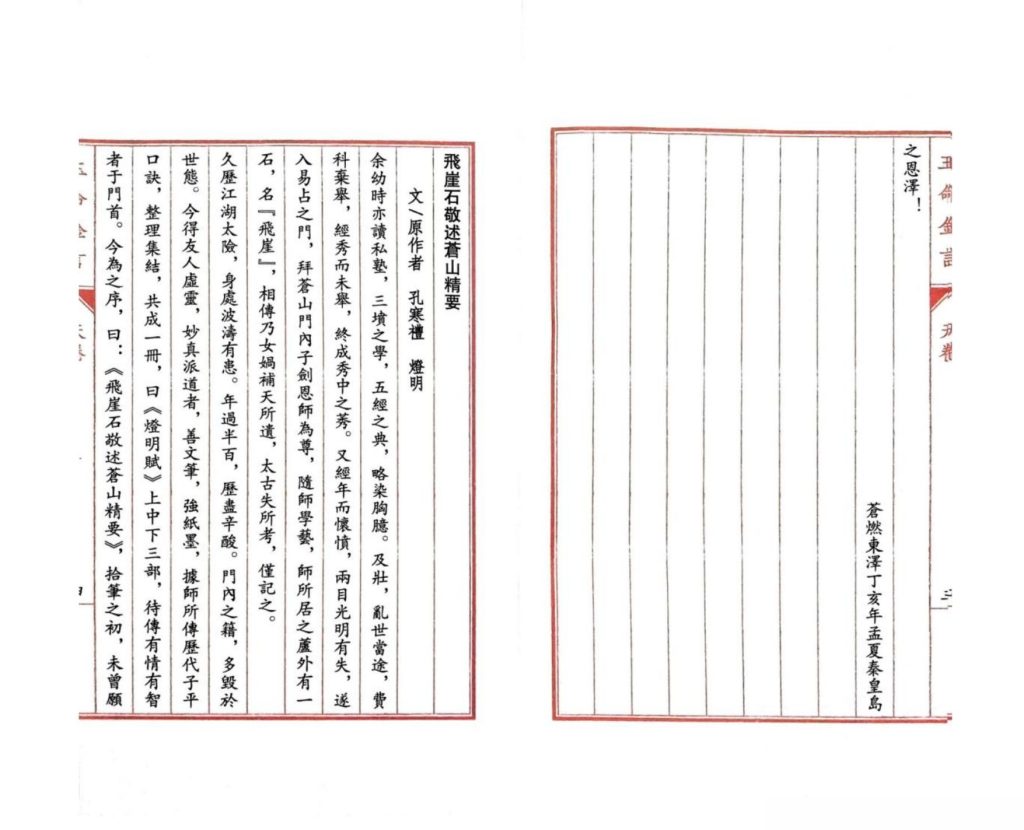 之恩澤！
蒼燃東澤丁亥年孟夏秦皇島
飛崖石敬述蒼山精要
文\原作者　孔寒櫃　燈明
余幼時亦讀私塾，三墳之學，五經之典，略染胸臆。及壯，亂世當途，費
科棄舉，經秀而未舉，終成秀中之莠。又經年而懷憤，兩目光明有失，遂
入易占之門，拜蒼山門內子劍恩師為尊，隨師學藝，師所居之蘆外有一
石，名『飛崖』，相傳乃女媧補天所遺，太古失所考，僅記之。
久歷江湖太險，身處波濤有患。年過半百，歷盡辛酸。門內之籍，多毀於
世態。今得友人虛靈，妙真派道者，善文筆，強紙墨，據師所傳歷代子平
口訣，整理集結，共成一冊，曰《燈明賦》上中下三部，待傳有情有智
者于門首。今為之序，曰：《飛崖石敬述蒼山精要》，拾筆之初，未曾願